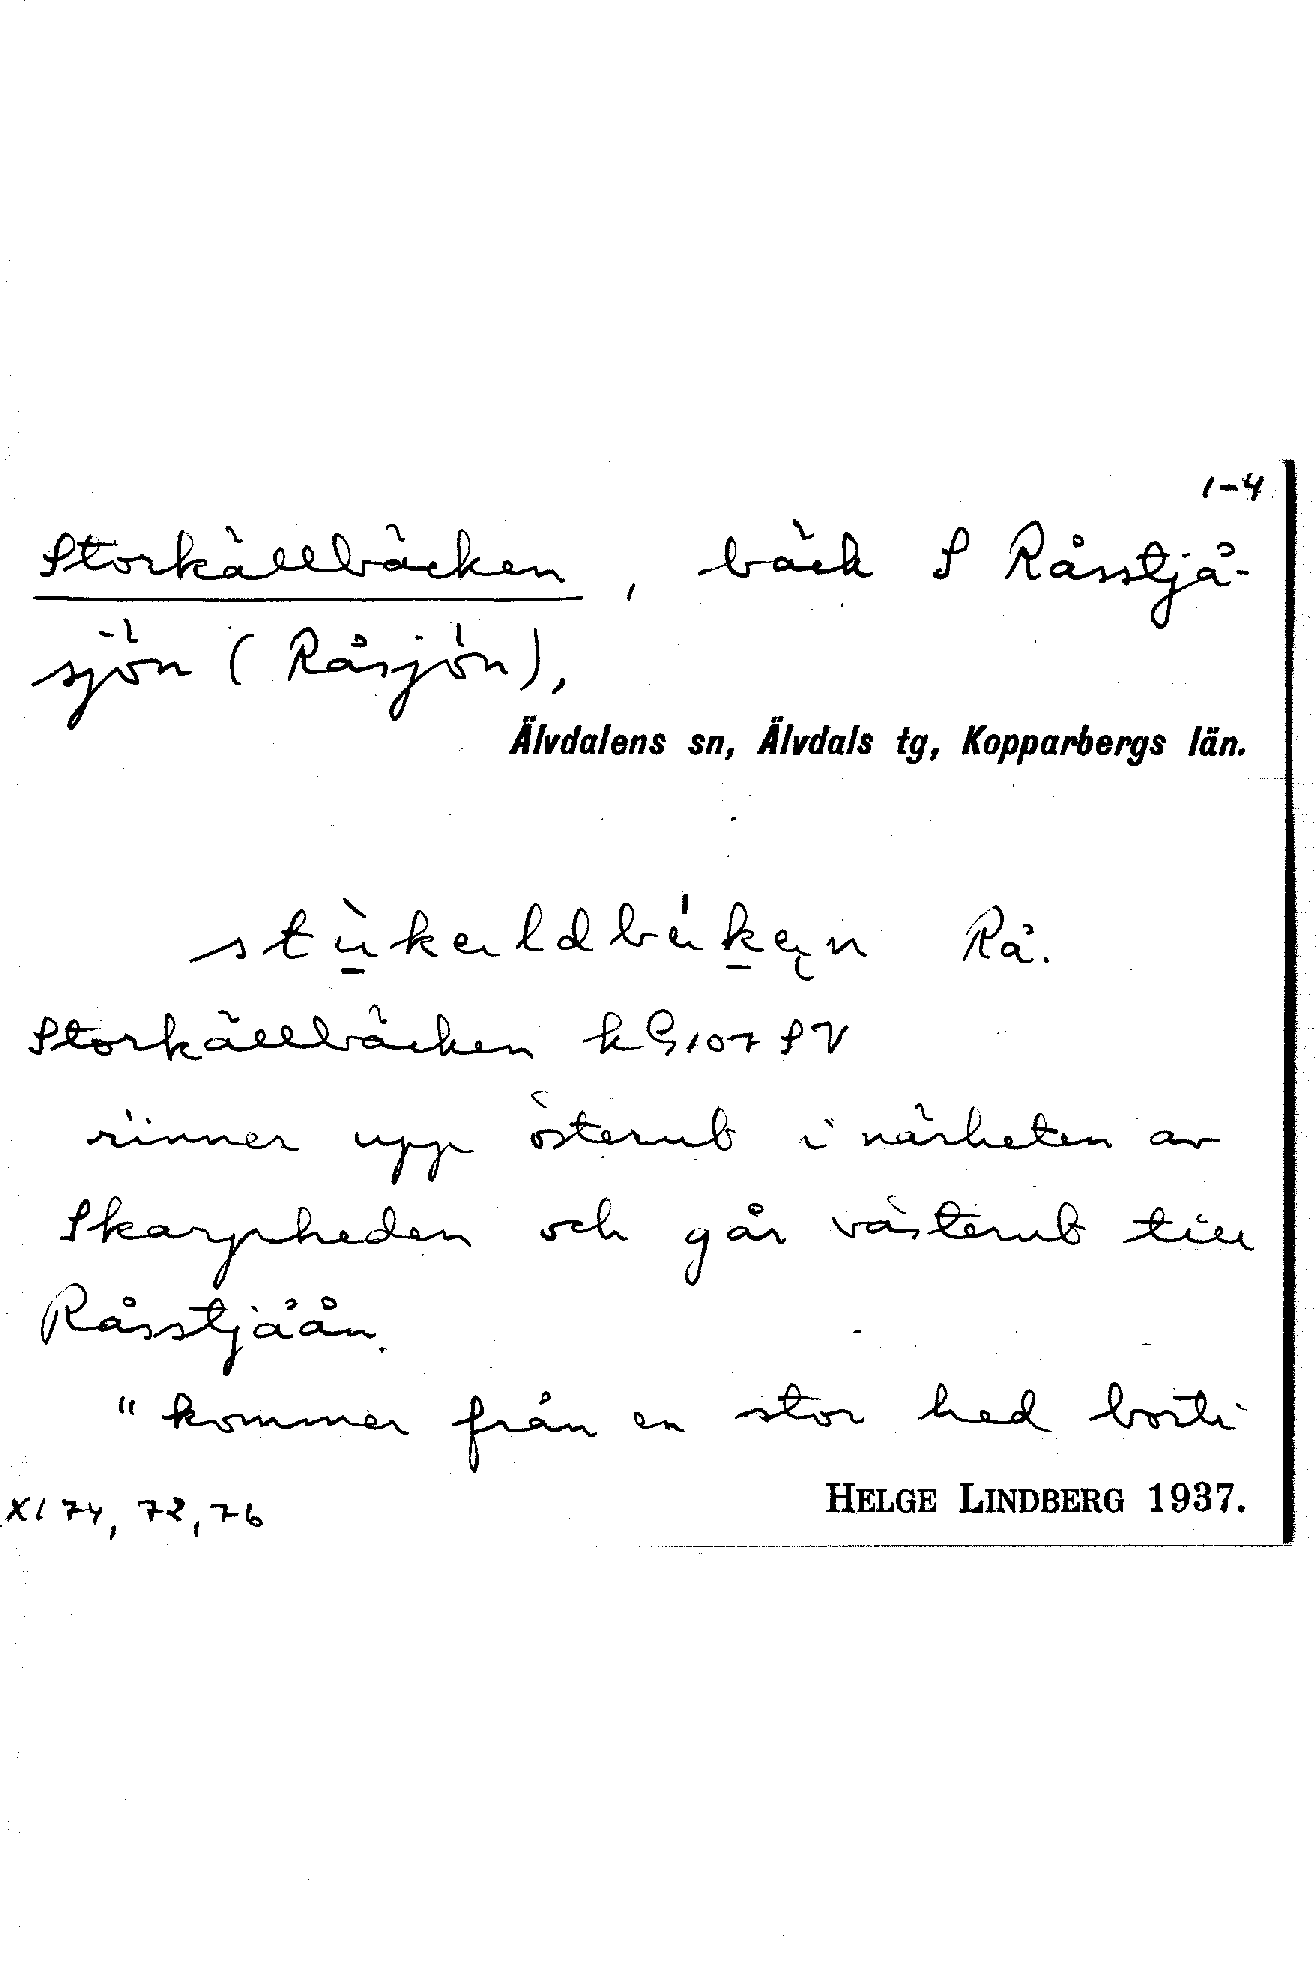 1-4
Storkällbäcken, bäck S Råsstjå-
sjön (Råsjön),
Älvdalens sn, Älvdals tg, Kopparbergs län.
Rå.
Storkällbäcken kG107 SV
rinner upp österut i närheten av
Skarpheden och går västerut till
Råsstjåån.
"kommer från en stor hed borti
XI 74, 72, 76
HELGE LINDBERG 1937.